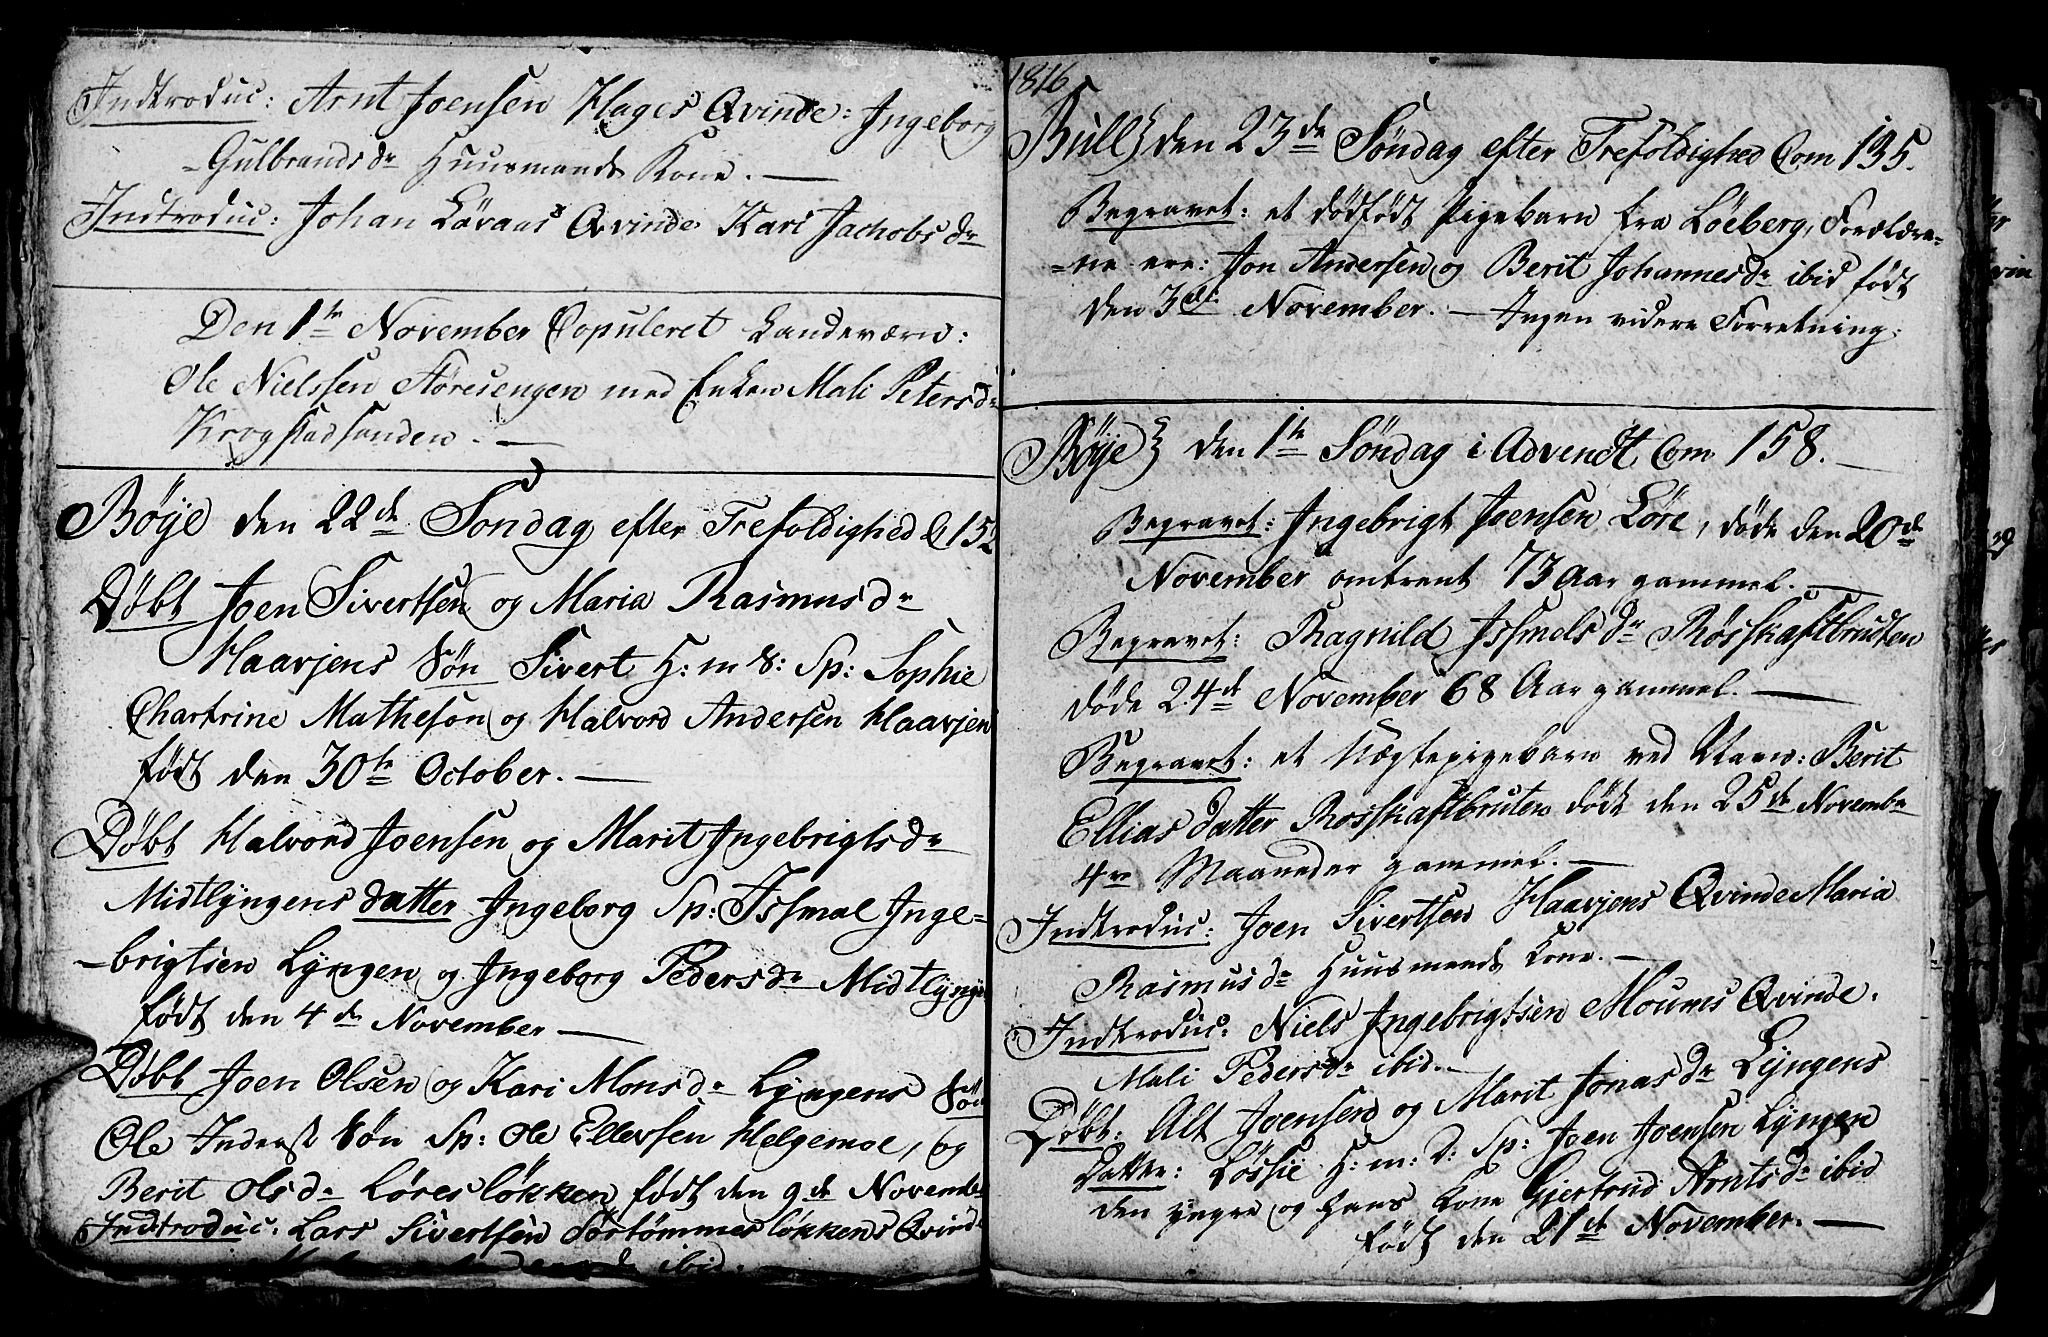 Indtroduc: Arnt Joensen Hages Qvinde: Ingeborg
-Gulbrandsdr Huusmands Kone. —
Indtroduc: Johan Løraas Qvinde Kari Jachobsdr
Den 1te November Copuleret Landeværn:
Ole Nielssen Støresengen med Enken Mali Petersdr
Krogstadsanden. —
Böÿe den 22de Sondag efter Trefoldighed C 152
Döbt Joen Sivertsen og Maria Rasmusdr
Haavjens Sön Sivert H: m S: Sp: Sophie
Chartrine Matheson og Halvord Andersen Haavjen
født den 30te October. —
Döbt Halvord Joensen og Marit Ingebrigtsdr
Midtlÿngens datter Ingeborg Sp: Issmal Inge=
-brigtsen Lÿngen og Ingeborg Pedersdr Midtlÿngen
født den 4de November —
Döbt Joen Olsen og Kari Monsdr Lÿngens
Ole Inderst Sön Sp: Ole Ellevsen Helgemoe, og
Berit Olsdr Løresløkken født den 9de Novembr
Indtroduc: Lars Sivertsen Sørtømmesløkkens Qvinde
ibid. —
1816
Büll den 23de Söndag efter Trefoldighed Com 135.
Begravet: et dödfödt Pigebarn fra Löeberg, Forældre=
=ne ere: Jon Andersen og Berit Johannesdr ibid födt
den 3die November. — Ingen videre Forretning.
Böÿe den 1te Söndag i Advendt Com 158. —
Begravet: Ingebrigt Joensen Löre, döde den 20de
November omtrent 73 Aar gammel. —
Begravet: Ragnild Issmelsdr Røsskaftbrudten
döde 24de November 68 Aar gammel. —
Begravet: et Uægtepigebarn ved Navn: Berit
Ellias datter Rosskaftbruten død den 25de Novembr
4re Maaneder gammel. —
Indtroduc: Joen Sivertsen Haavjens Qvinde Maria
Rasmusdr Huusmands Kone. —
Indtroduc: Niels Ingebrigtsen Moums Qvinde.
Mali Pedersdr ibid. —
Döbt: Alt Joensen og Marit Jonasdr Lÿngens
Datter: Løssie H: m: D: Sp: Joen Joensen Lÿngen
den yngre og Hans Kone Gjertrud Arntsdr ibid
født den 21de November. —